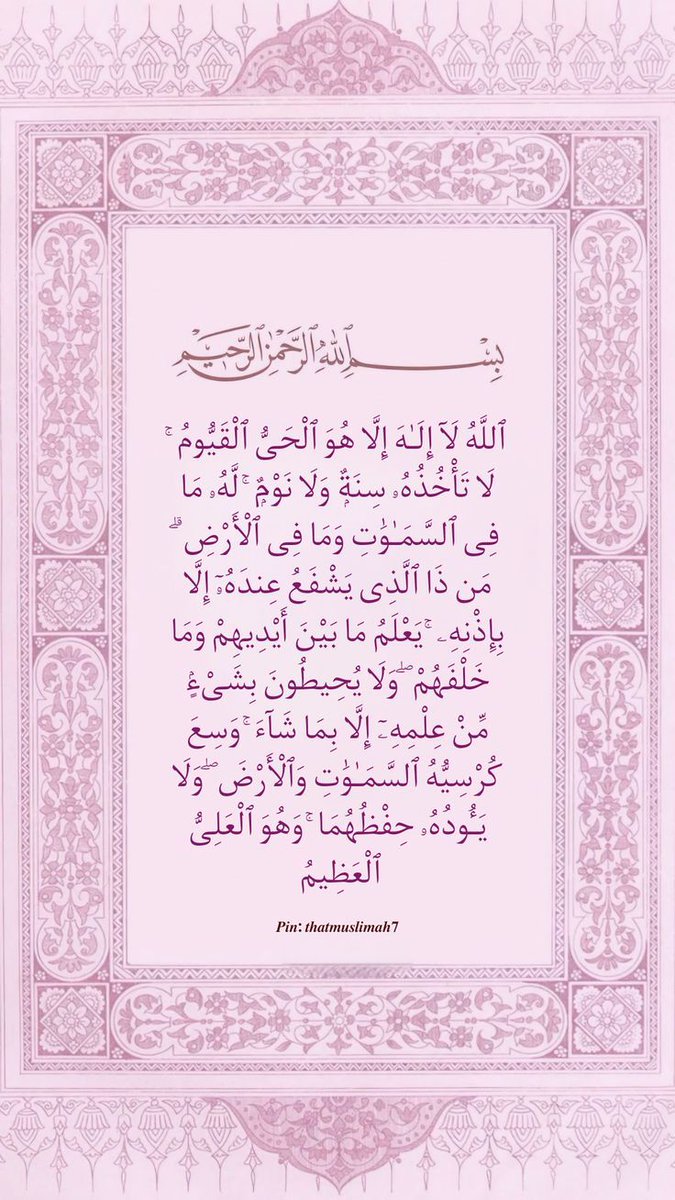 بِسْمِ ٱللَّهِ ٱلرَّحْمَٰنِ ٱلرَّحِيمِ
ٱللَّهُ لَآ إِلَـٰهَ إِلَّا هُوَ ٱلْحَىُّ ٱلْقَيُّومُ ۚ
لَا تَأْخُذُهُۥ سِنَةٌۭ وَلَا نَوْمٌۭ ۚ لَّهُۥ مَا
فِى ٱلسَّمَـٰوَٰتِ وَمَا فِى ٱلْأَرْضِ ۗ
مَن ذَا ٱلَّذِى يَشْفَعُ عِندَهُۥٓ إِلَّا
بِإِذْنِهِۦ ۚ يَعْلَمُ مَا بَيْنَ أَيْدِيهِمْ وَمَا
خَلْفَهُمْ ۖ وَلَا يُحِيطُونَ بِشَىْءٍۢ
مِّنْ عِلْمِهِۦٓ إِلَّا بِمَا شَآءَ ۚ وَسِعَ
كُرْسِيُّهُ ٱلسَّمَـٰوَٰتِ وَٱلْأَرْضَ ۖ وَلَا
يَـُٔودُهُۥ حِفْظُهُمَا ۚ وَهُوَ ٱلْعَلِىُّ
ٱلْعَظِيمُ
Pin: thatmuslimah7